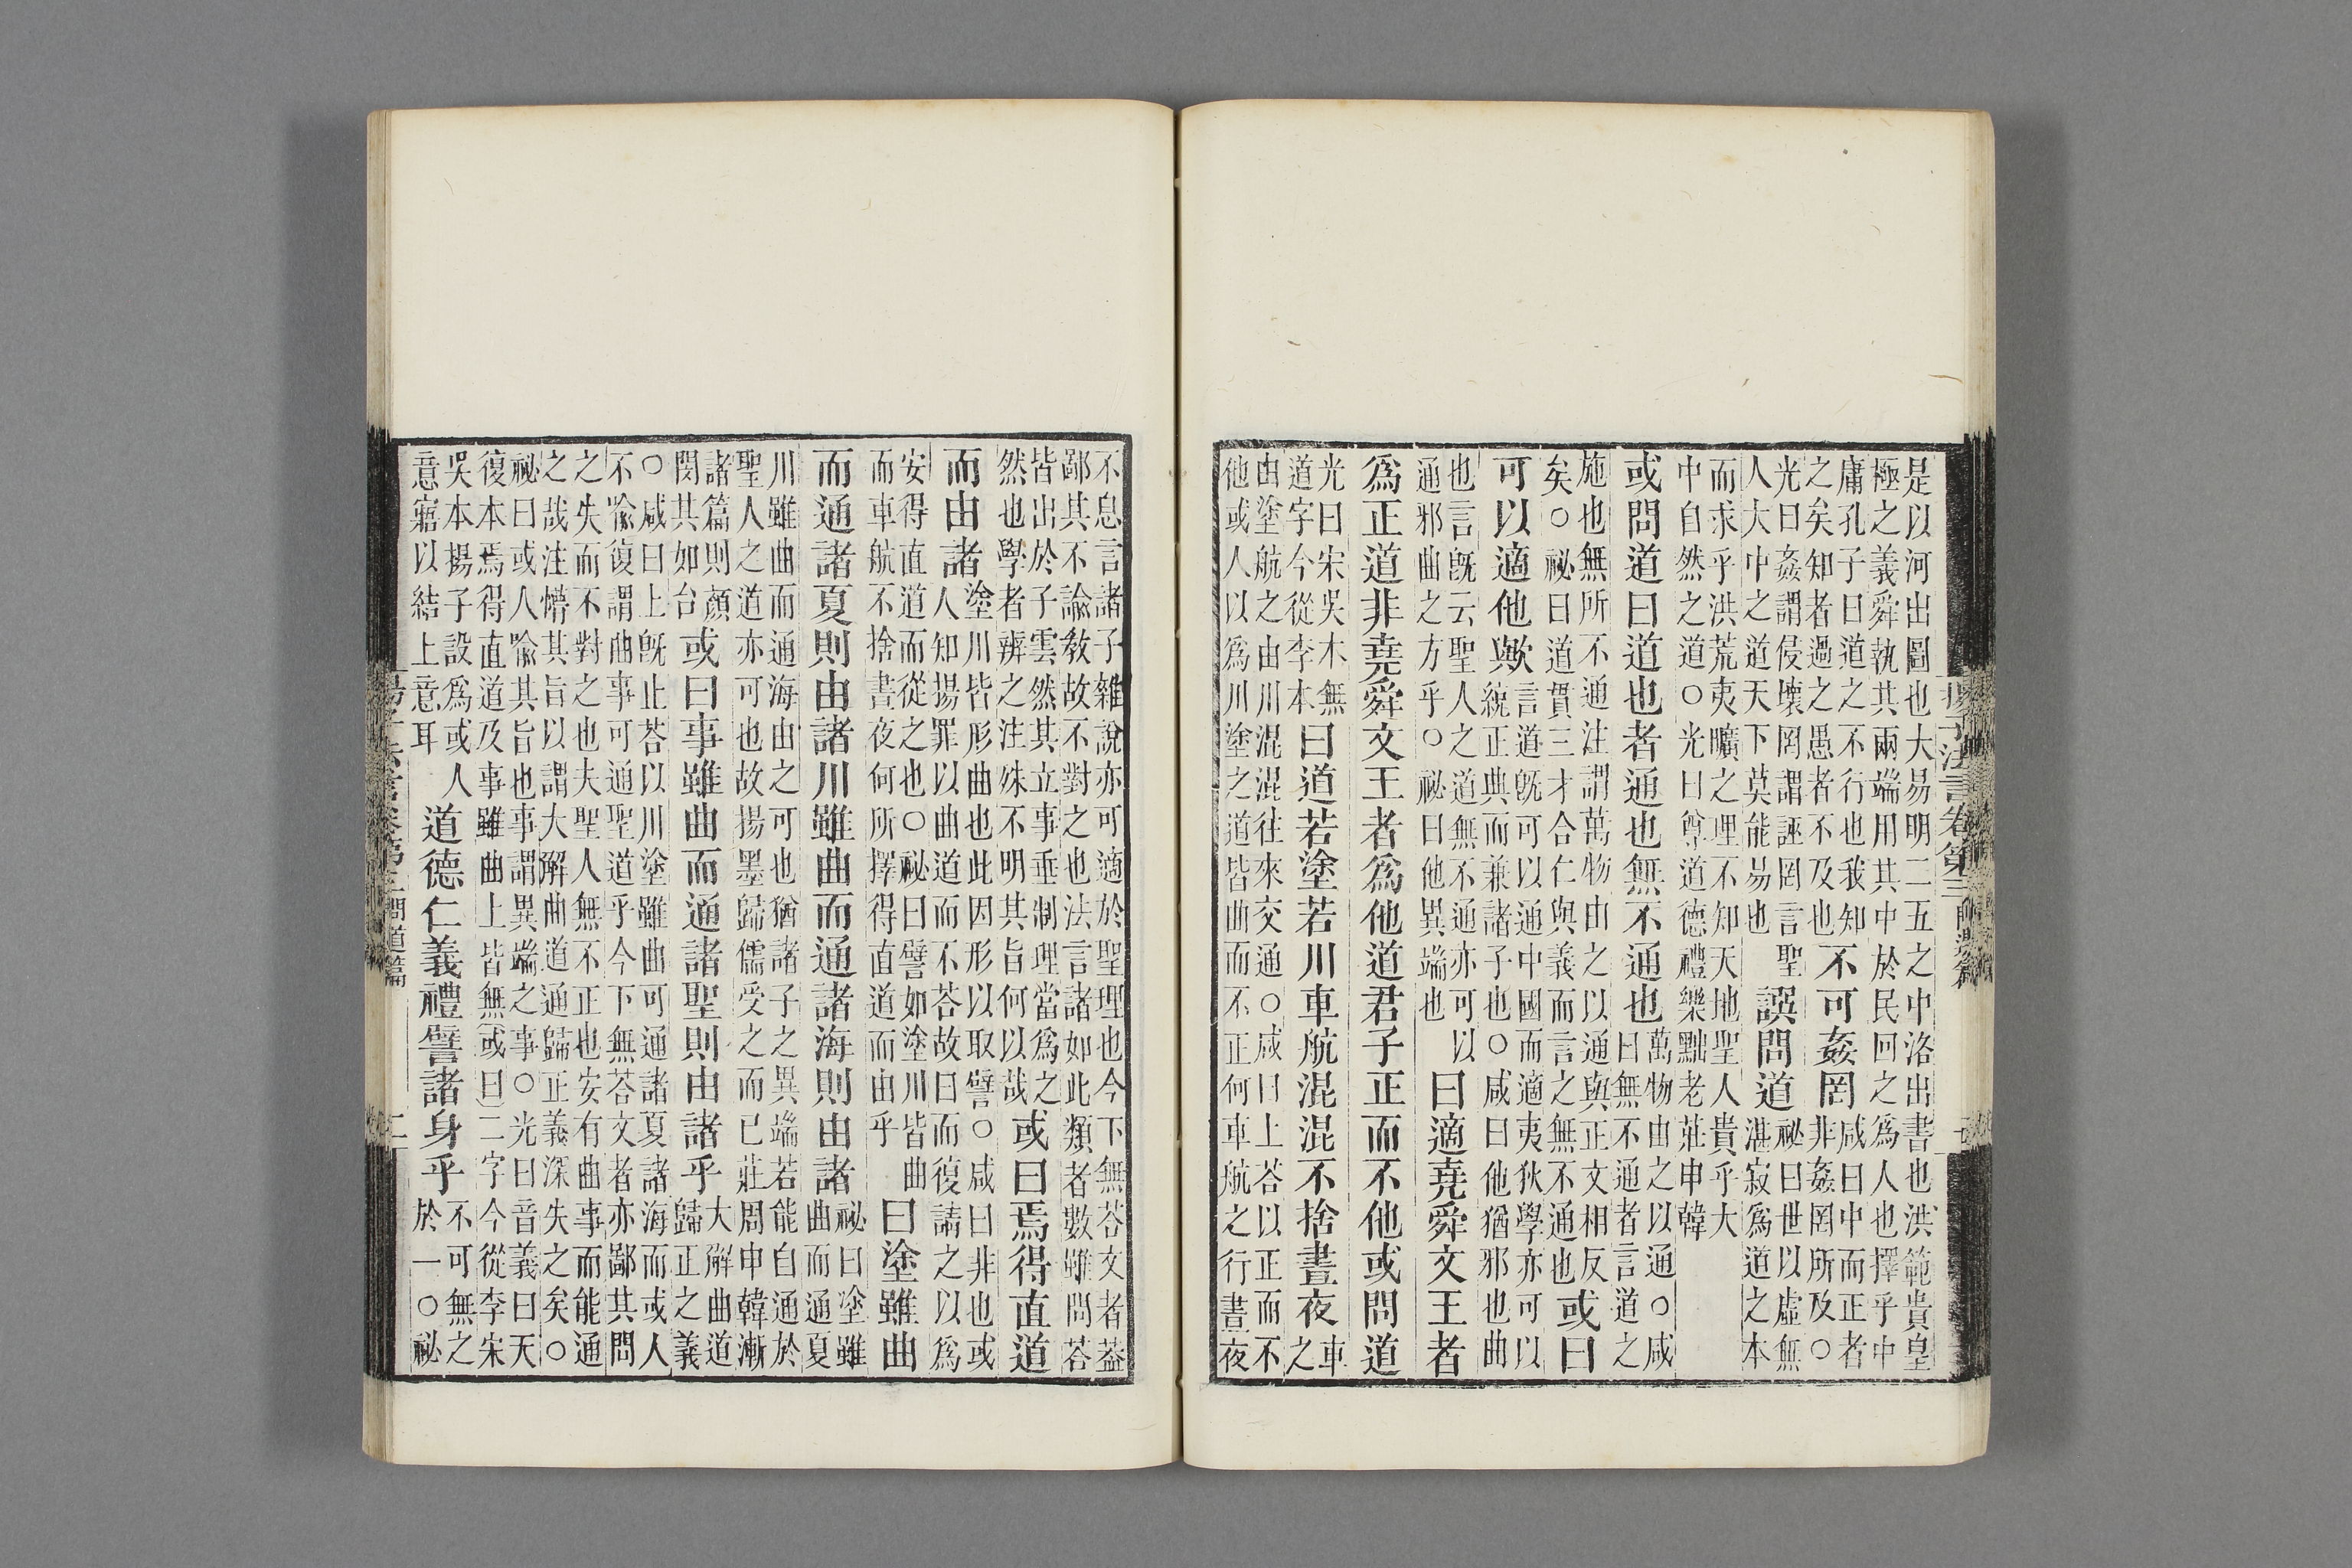 是以河出圖也大易明二五之中洛出書也洪範貴皇
極之義舜執其兩端用其中於民回之為人也擇乎中
庸孔子曰道之不行也我知
之矣知者過之愚者不及也
不可姦罔
咸曰中而正者
非姦罔所及○
光曰姦謂侵壞罔謂誣罔言聖
人大中之道天下莫能易也
譔問道
祕曰世以虛無
湛寂爲道之本
而求乎洪荒夷曠之理不知天地聖人貴乎大
中自然之道○光曰尊道德禮樂黜老莊申韓
或問道曰道也者通也無不通也
萬物由之以通○咸
曰無不通者言道之
施也無所不通注謂萬物由之以通與正文相反
矣○祕曰道貫三才合仁與義而言之無不通也
或曰
可以適他歟
言道旣可以通中國而適夷狄學亦可以
統正典而兼諸子也○咸曰他猶邪也曲
也言旣云聖人之道無不通亦可以
通邪曲之方乎○祕曰他異端也
曰適堯舜文王者
爲正道非堯舜文王者爲他道君子正而不他或問道
光曰宋吳木無
道字今從李本
曰道若塗若川車航混混不捨晝夜
車
之
由塗航之由川混混往來交通○咸曰上荅以正而不
他或人以爲川塗之道皆曲而不正何車航之行晝夜
不息言諸子雜說亦可適於聖理也今下無荅文者葢
鄙其不諭教故不對之也法言諸如此類者數雖問荅
皆出於子雲然其立事垂制理當爲之
然也學者辨之注殊不明其旨何以哉
或曰焉得直道
而由諸
塗川皆形曲也此因形以取譬○咸曰非也或
人知揚罪以曲道而不荅故曰而復請之以爲
安得直道而從之也○祕曰譬如塗川皆曲
而車航不捨晝夜何所擇得直道而由乎
曰塗雖曲
而通諸夏則由諸川雖曲而通諸海則由諸
祕曰塗雖
曲而通夏
川雖曲而通海由之可也猶諸子之異端若能自通於
聖人之道亦可也故揚墨歸儒受之而已莊周申韓漸
諸篇則顏
閔其如台
或曰事雖曲而通諸聖則由諸乎
大解曲道
歸正之義
○咸曰上旣止荅以川塗雖曲可通諸夏諸海而或人
不喩復謂曲事可通聖道乎今下無荅文者亦鄙其問
之失而不對之也夫聖人無不正也安有曲事而能通
之哉注懵其旨以謂大解曲道通歸正義深失之矣○
祕曰或人喩其旨也事謂異端之事○光曰音義曰天
復本焉得直道及事雖曲上皆無或曰二字今從李宋
吳本揚子設爲或人
意寤以結上意耳
道德仁義禮譬諸身乎
不可無之
於一○祕